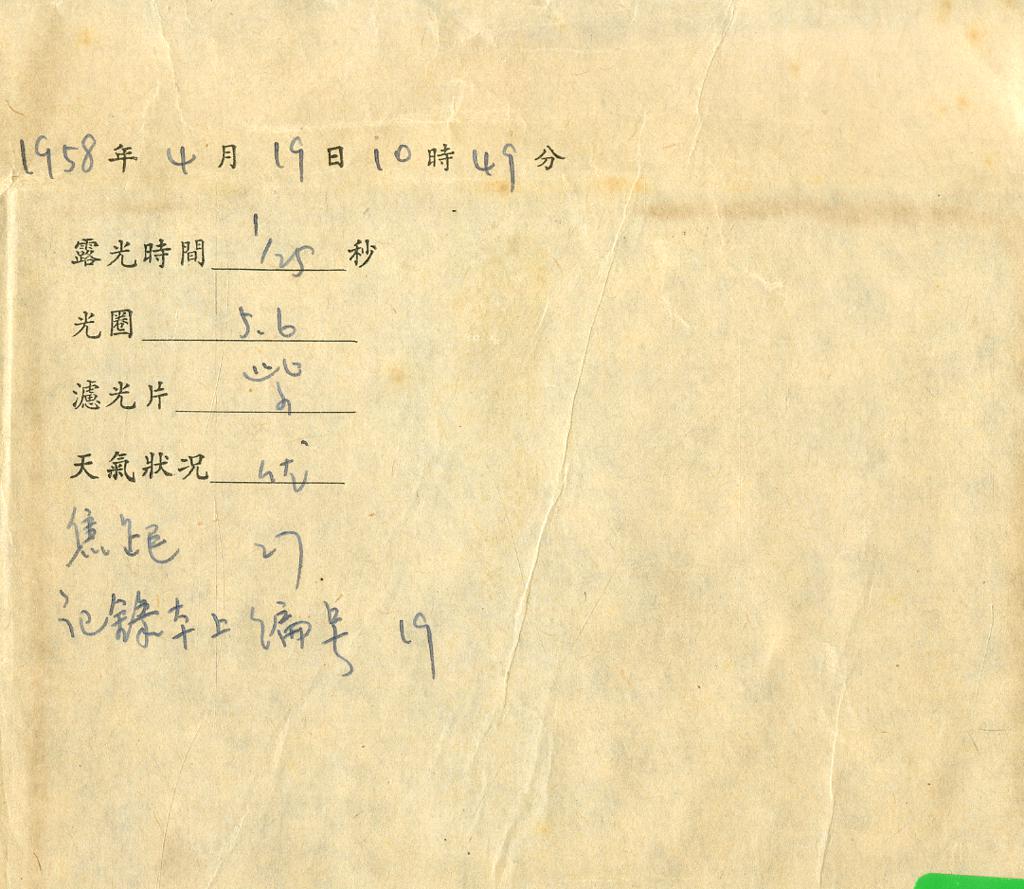 1958年 4月 19日 10時49分
露光時間 1/25 秒
光圈 5.6
濾光片
天氣狀况 优
焦距 27
记錄本上编号 19